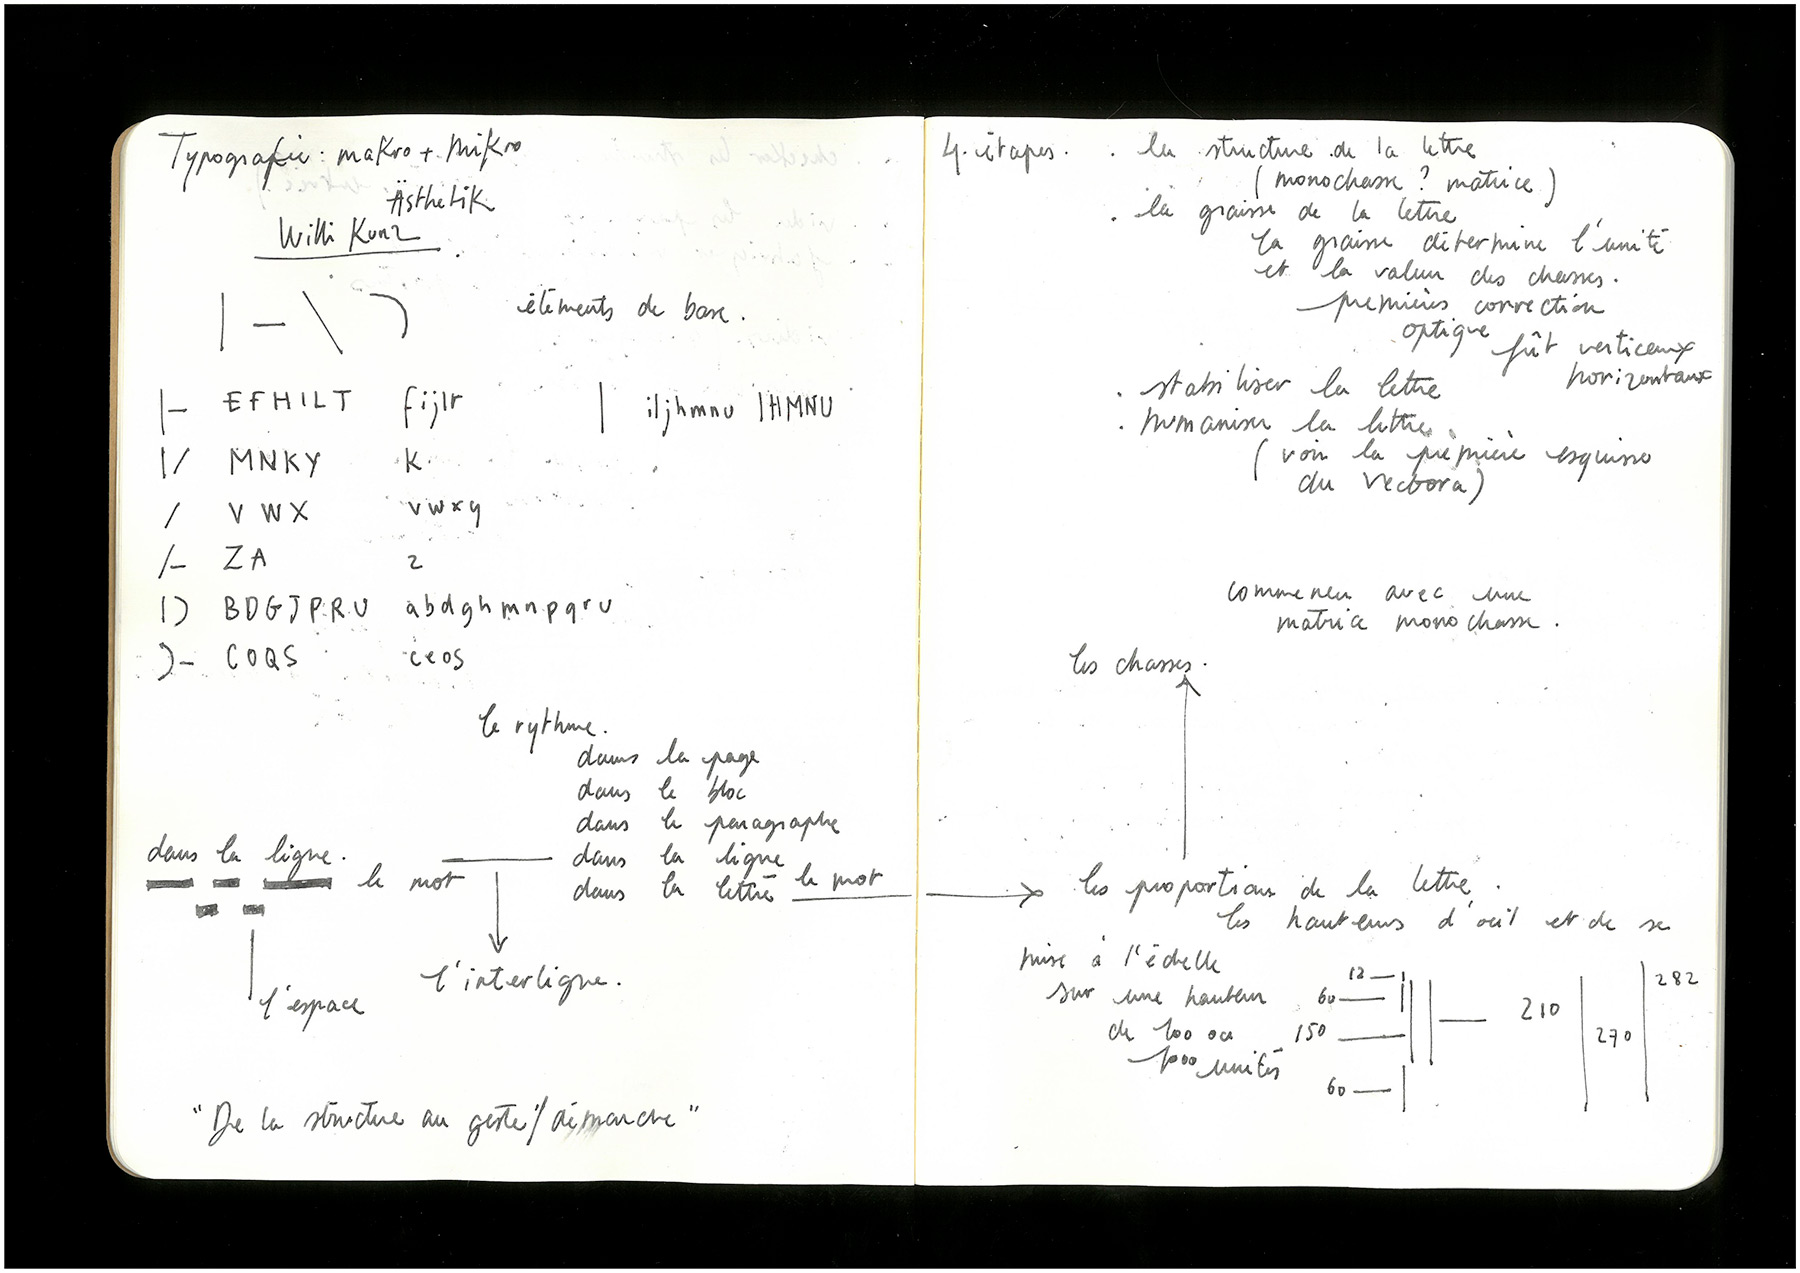 Typografie: makro + mikro
Ästhetik
Willi Kunz
éléments de base.
EFHILT fijlr
iljhmnu IHMNU
MNKY K
VWX vwxy
ZA z
BDGJPRU abdghmnpqru
COQS ceos
le rythme.
dans la page
dans le bloc
dans le paragraphe
dans la ligne
dans la lettre le mot
dans la ligne.
le mot
l'interligne.
l'espace
"De la structure au geste/démarche"
4 étapes. . la structure de la lettre
(monochasse ? matrice)
. la graisse de la lettre
la graisse détermine l'unité
et la valeur des chasses.
premières correction
optique
fût verticaux
horizontaux
. stabiliser la lettre
. humaniser la lettre.
(voir la première esquisse
du Vectora)
commencer avec une
matrice monochasse.
les chasses.
les proportions de la lettre.
les hauteurs d'œil et de se
mise à l'échelle
sur une hauteur
de 100 ou
1000 unités
12
60
150
60
210
270
282